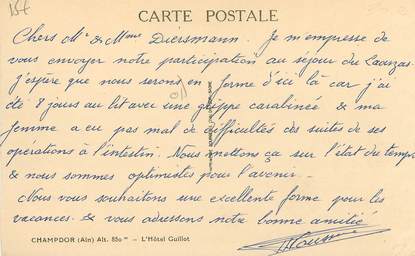 CARTE POSTALE
Chers Mr & Mme Diersmann. Je m'empresse de
vous envoyer notre participation au séjour du
j'espère que nous serons en forme d'ici là car j'ai
été 8 jours au lit avec une grippe carabinée & ma
femme a eu pas mal de difficultés des suites de ses
opérations à l'intestin. Nous mettons ça sur l'état du temps
& nous sommes optimistes pour l'avenir.
Nous vous souhaitons une excellente forme pour les
vacances. & vous adressons notre bonne amitié
CHAMPDOR (Ain) Alt. 850 m — L'Hôtel Guillot